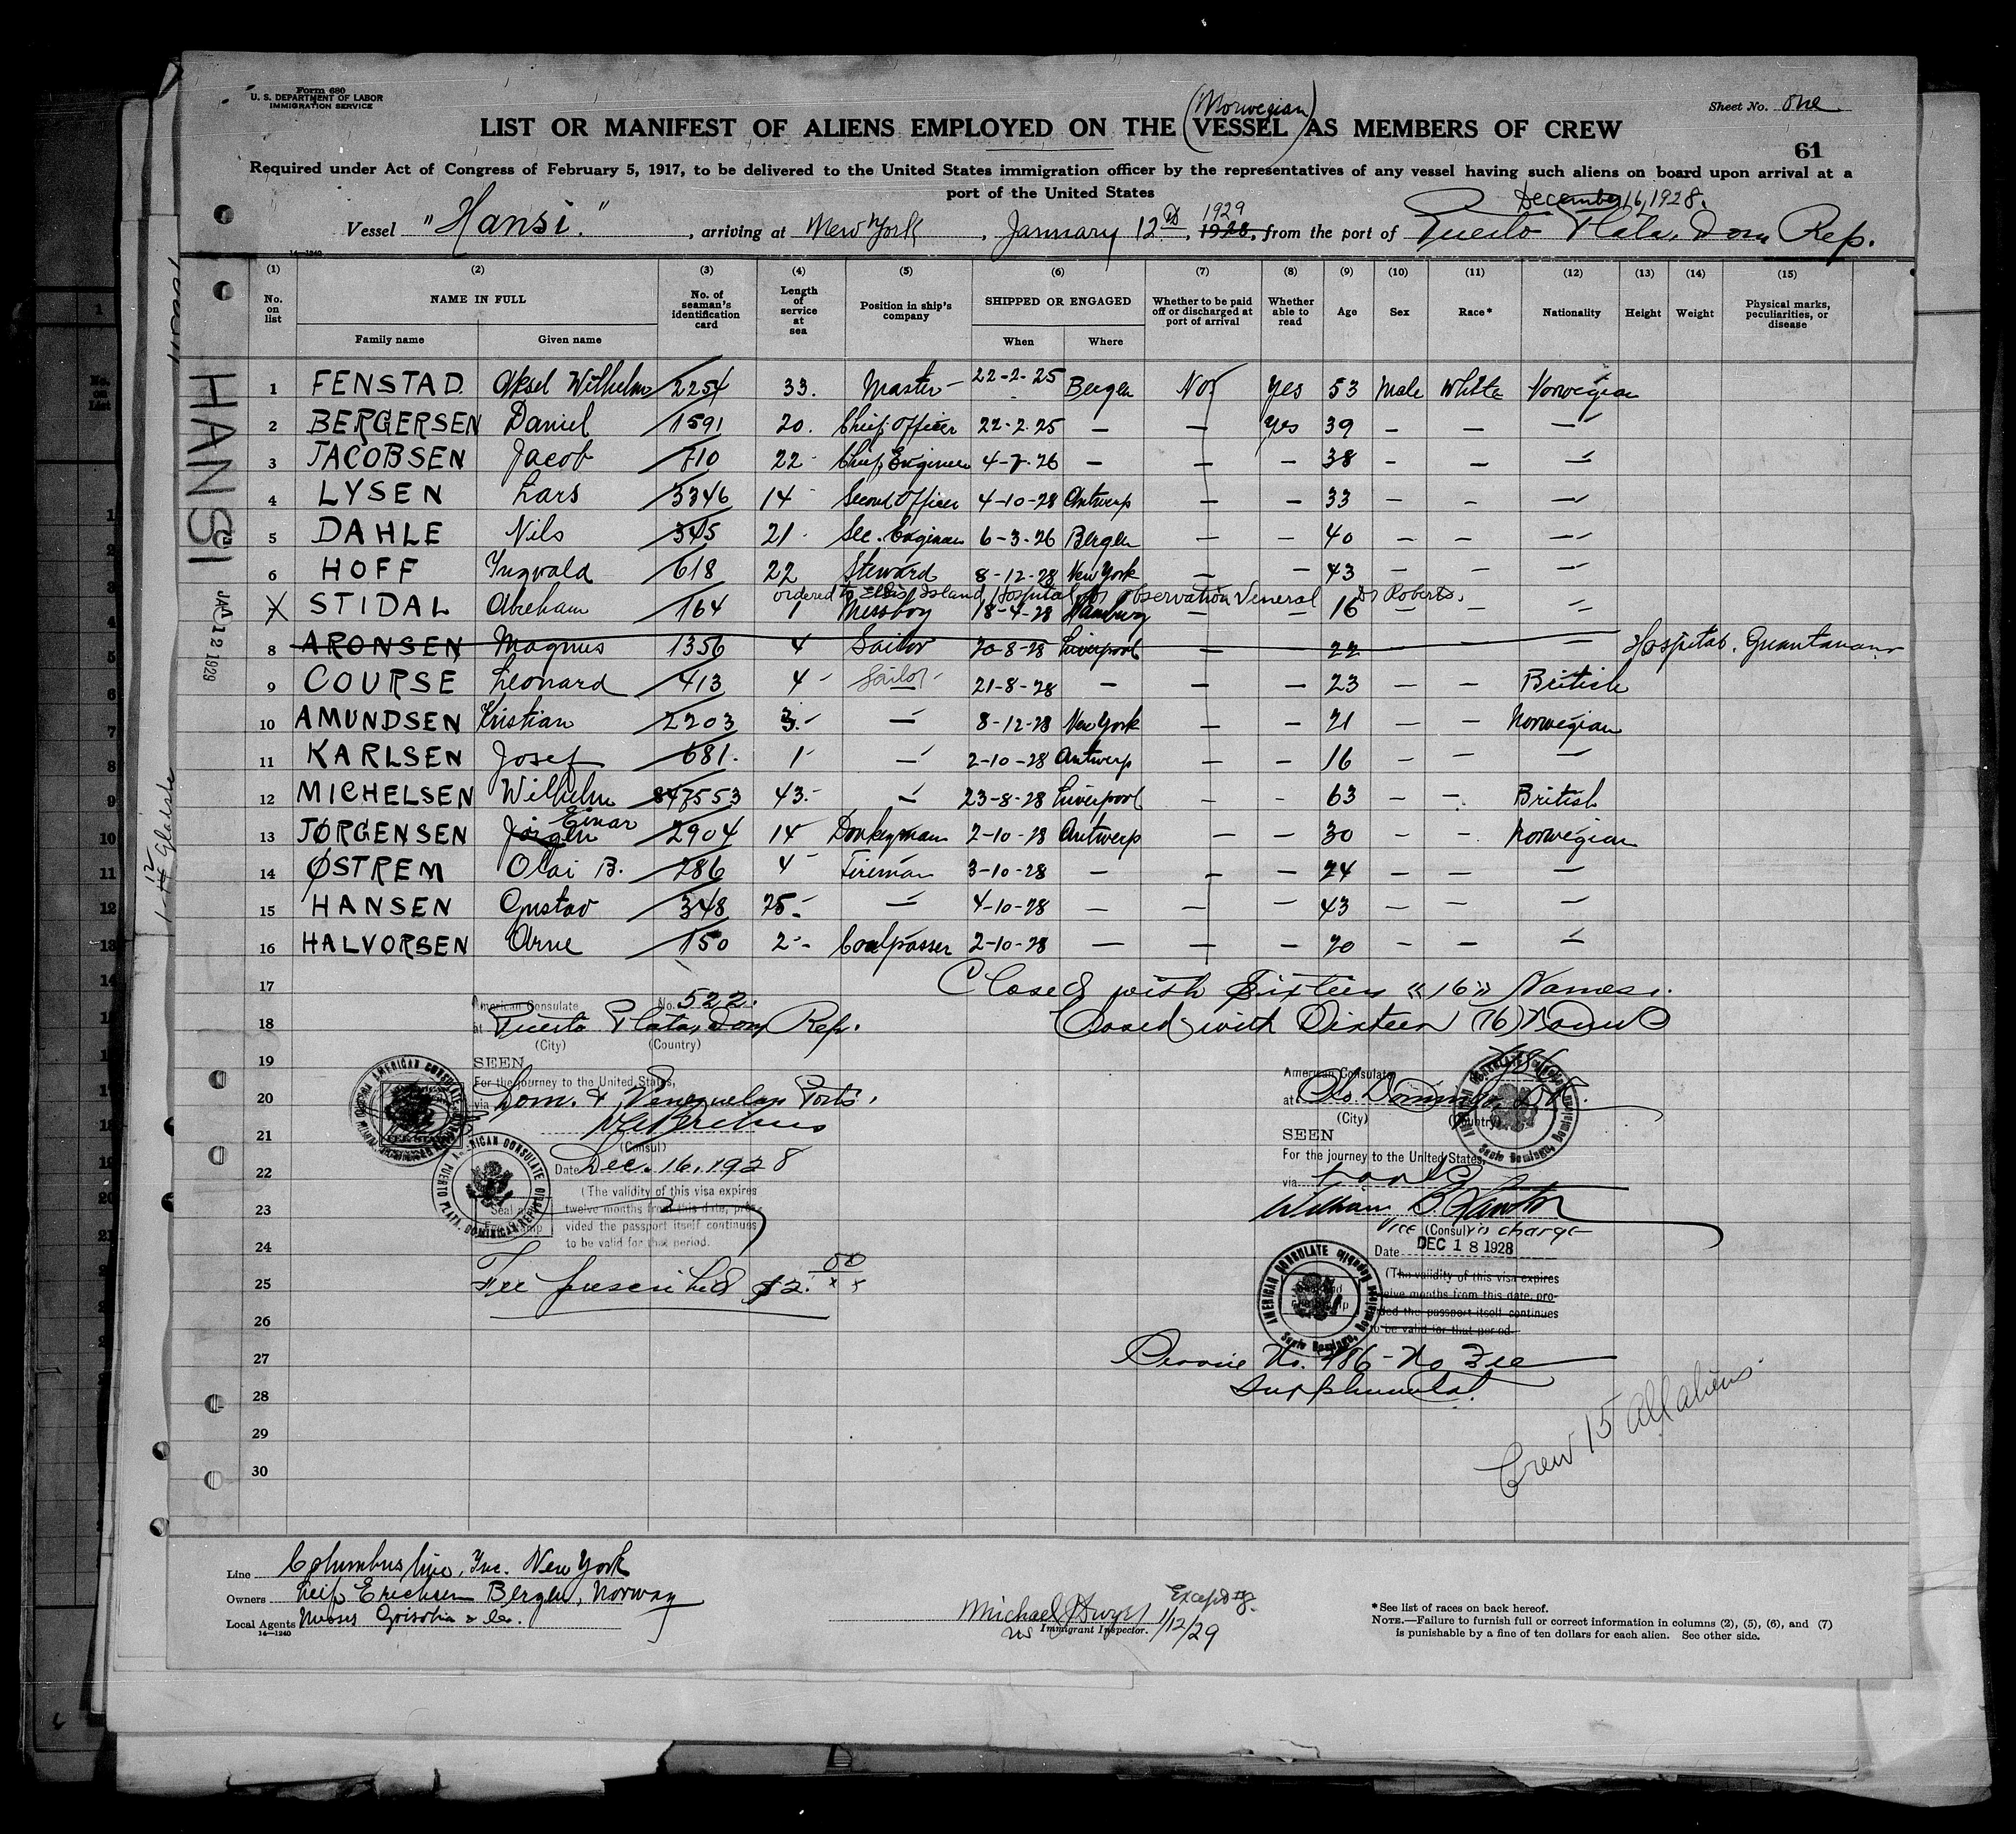 Form 680
U. S. DEPARTMENT OF LABOR
IMMIGRATION SERVICE
Sheet No. One
(Norwegian)
LIST OR MANIFEST OF ALIENS EMPLOYED ON THE VESSEL AS MEMBERS OF CREW
61
Required under Act of Congress of February 5, 1917, to be delivered to the United States immigration officer by the representatives of any vessel having such aliens on board upon arrival at a
port of the United States
December 16, 1928.
Vessel "Hansi.", arriving at New York, January 12th, 1929 1928, from the port of Puerto Plata, Dom Rep.
14—1240
(1) (2) (3) (4) (5) (6) (7) (8) (9) (10) (11) (12) (13) (14) (15)
No. on list NAME IN FULL No. of seaman's identification card Length of service at sea Position in ship's company SHIPPED OR ENGAGED Whether to be paid off or discharged at port of arrival Whether able to read Age Sex Race* Nationality Height Weight Physical marks, peculiarities, or disease
Family name Given name When Where
HANSI
JAN 12 1929
1 FENSTAD. Aksel Wilhelm 2254 33. Master — 22-2-25 Bergen No Yes 53 Male White Norwegian
2 BERGERSEN Daniel 1591 20. Chief Officer 22-2-25 — — Yes 39 — — —
3 JACOBSEN Jacob 710 22 - Chief Engineer 4-7-26 — — — 38 — — —
4 LYSEN Lars 3346 14 - Second Officer 4-10-28 Antwerp — — 33 — — —
5 DAHLE Nils 345 21 - Sec. Engineer 6-3-26 Bergen — — 40 — — —
6 HOFF Yngvald 618 22 Steward 8-12-28 New York — — 43 — — —
ordered to Ellis Island Hospital for observation Veneral Dr Roberts.
X STIDAL Abraham 164 1 Messboy 18-4-28 Hamburg 16 — — —
8 ARONSEN Magnus 1356 4 Sailor 20-8-28 Liverpool — 22 — — — Hospital. Guantanamo
9 COURSE Leonard 413 4 - Sailor - 21-8-28 — — — 23 — — British
10 AMUNDSEN Kristian 2203 3. - — 8-12-28 New York — — 21 — — Norwegian
11 KARLSEN Josef 681. 1 - — 2-10-28 Antwerp — — 16 — —
12 MICHELSEN Wilhelm 847553 43. - — 23-8-28 Liverpool — — 63 — — British
Einar
13 JØRGENSEN Jörgen 2904 14 Donkeyman 2-10-28 Antwerp — — 30 — — Norwegian
14 ØSTREM Olai B. 286 4 - Fireman 3-10-28 — — — 24 — — —
15 HANSEN Gustav 348 25 - — 4-10-28 — — — 43 — — —
16 HALVORSEN Arne 150 2 - Coalpasser 2-10-28 — — — 20 — — —
17 Closed with Sixteen "16" Names.
18 Closed with Sixteen (16) Names
19
20
21
22
23
24
25
26
27
28
29
30
American Consulate No. 522.
at Puerto Plata, Dom Rep.
(City) (Country)
SEEN
For the journey to the United States,
via Dom. & Venezuelan Ports.
(Consul)
Date Dec. 16, 1928
(The validity of this visa expires
twelve months from this date, pro-
vided the passport itself continues
to be valid for that period.
AMERICAN CONSULATE PUERTO PLATA, DOMINICAN REPUBLIC
Fee prescribed $2. 00
American Consulate
at Sto. Domingo, D.R.
(City) (Country)
SEEN
For the journey to the United States,
via
William B. Lawton
Vice (Consul) in charge
Date DEC 18 1928
(The validity of this visa expires
twelve months from this date, pro-
vided the passport itself continues
to be valid for that period.
AMERICAN CONSULATE Santo Domingo, Dominican Republic
Service No. 486 - No Fee
Supplemental.
Crew 15 All aliens
Line Columbus Line, Inc. New York
Owners Leif Erichsen Bergen, Norway
Local Agents Messrs Grisolia & Co.
14—1240
Michael J Dwyer 1/12/29
US Immigrant Inspector.
*See list of races on back hereof.
NOTE.—Failure to furnish full or correct information in columns (2), (5), (6), and (7)
is punishable by a fine of ten dollars for each alien. See other side.